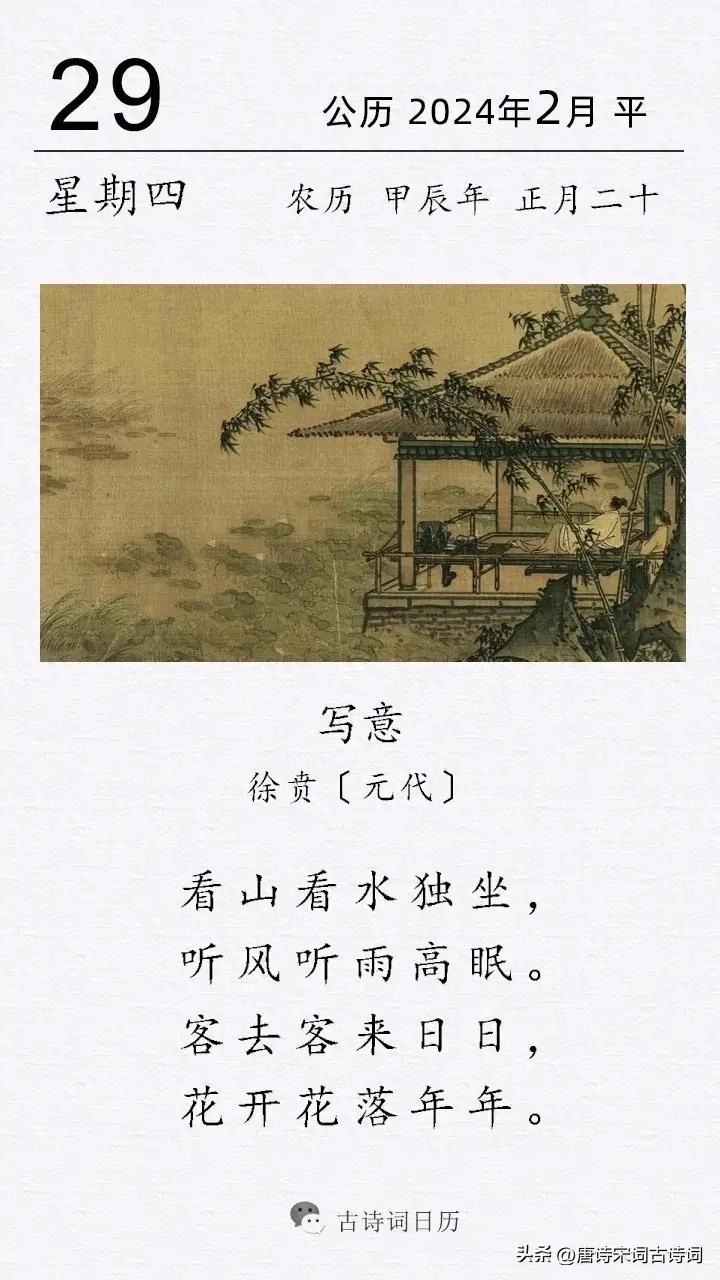 29
公历 2024年2月 平
星期四
农历 甲辰年 正月二十
写意
徐贲〔元代〕
看山看水独坐，
听风听雨高眠。
客去客来日日，
花开花落年年。
古诗词日历
头条 @唐诗宋词古诗词